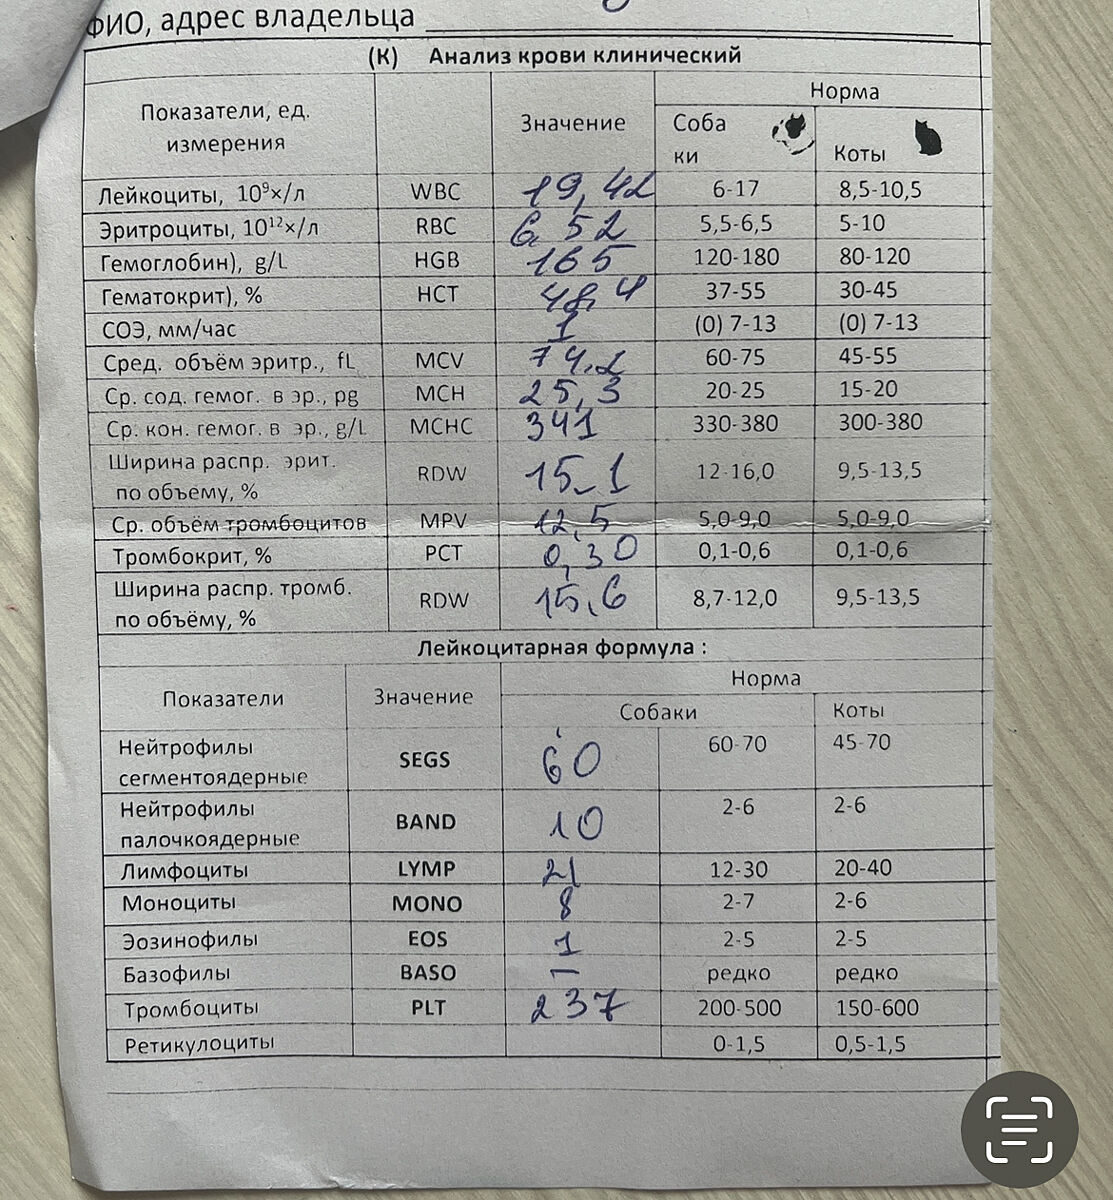 ФИО, адрес владельца
(К) Анализ крови клинический
Показатели, ед. измерения Значение Норма
Собаки Коты
Лейкоциты, 10⁹х/л WBC 19,42 6-17 8,5-10,5
Эритроциты, 10¹²х/л RBC 6,52 5,5-6,5 5-10
Гемоглобин), g/L HGB 165 120-180 80-120
Гематокрит), % HCT 48,4 37-55 30-45
СОЭ, мм/час 1 (0) 7-13 (0) 7-13
Сред. объём эритр., fL MCV 74,2 60-75 45-55
Ср. сод. гемог. в эр., pg MCH 25,3 20-25 15-20
Ср. кон. гемог. в эр., g/L MCHC 341 330-380 300-380
Ширина распр. эрит. по объему, % RDW 15,1 12-16,0 9,5-13,5
Ср. объём тромбоцитов MPV 12,5 5,0-9,0 5,0-9,0
Тромбокрит, % PCT 0,30 0,1-0,6 0,1-0,6
Ширина распр. тромб. по объёму, % RDW 15,6 8,7-12,0 9,5-13,5
Лейкоцитарная формула :
Показатели Значение Норма
Собаки Коты
Нейтрофилы сегментоядерные SEGS 60 60-70 45-70
Нейтрофилы палочкоядерные BAND 10 2-6 2-6
Лимфоциты LYMP 21 12-30 20-40
Моноциты MONO 8 2-7 2-6
Эозинофилы EOS 1 2-5 2-5
Базофилы BASO – редко редко
Тромбоциты PLT 237 200-500 150-600
Ретикулоциты 0-1,5 0,5-1,5